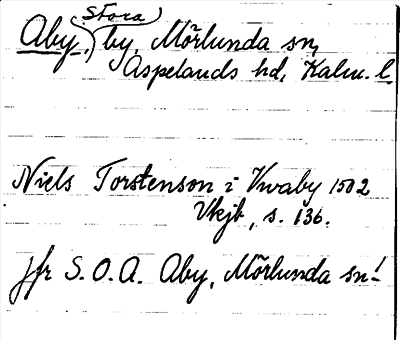 Stora
Aby, by, Mörlunda sn,
Aspelands hd, Kalm. l.
Niels Torstenson i Vwaby 1502
Vkjb, s. 136.
jfr S. O. A. Aby, Mörlunda sn!